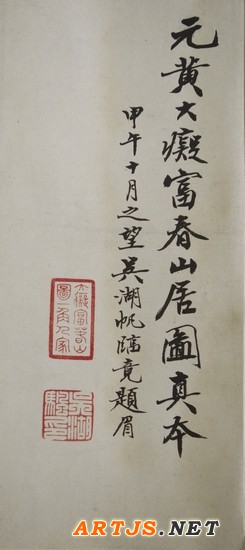 元黄大癡富春山居圖真本
甲午十月之望吴湖帆臨竟題眉
大癡富春山圖一角人家
ARTJS.NET